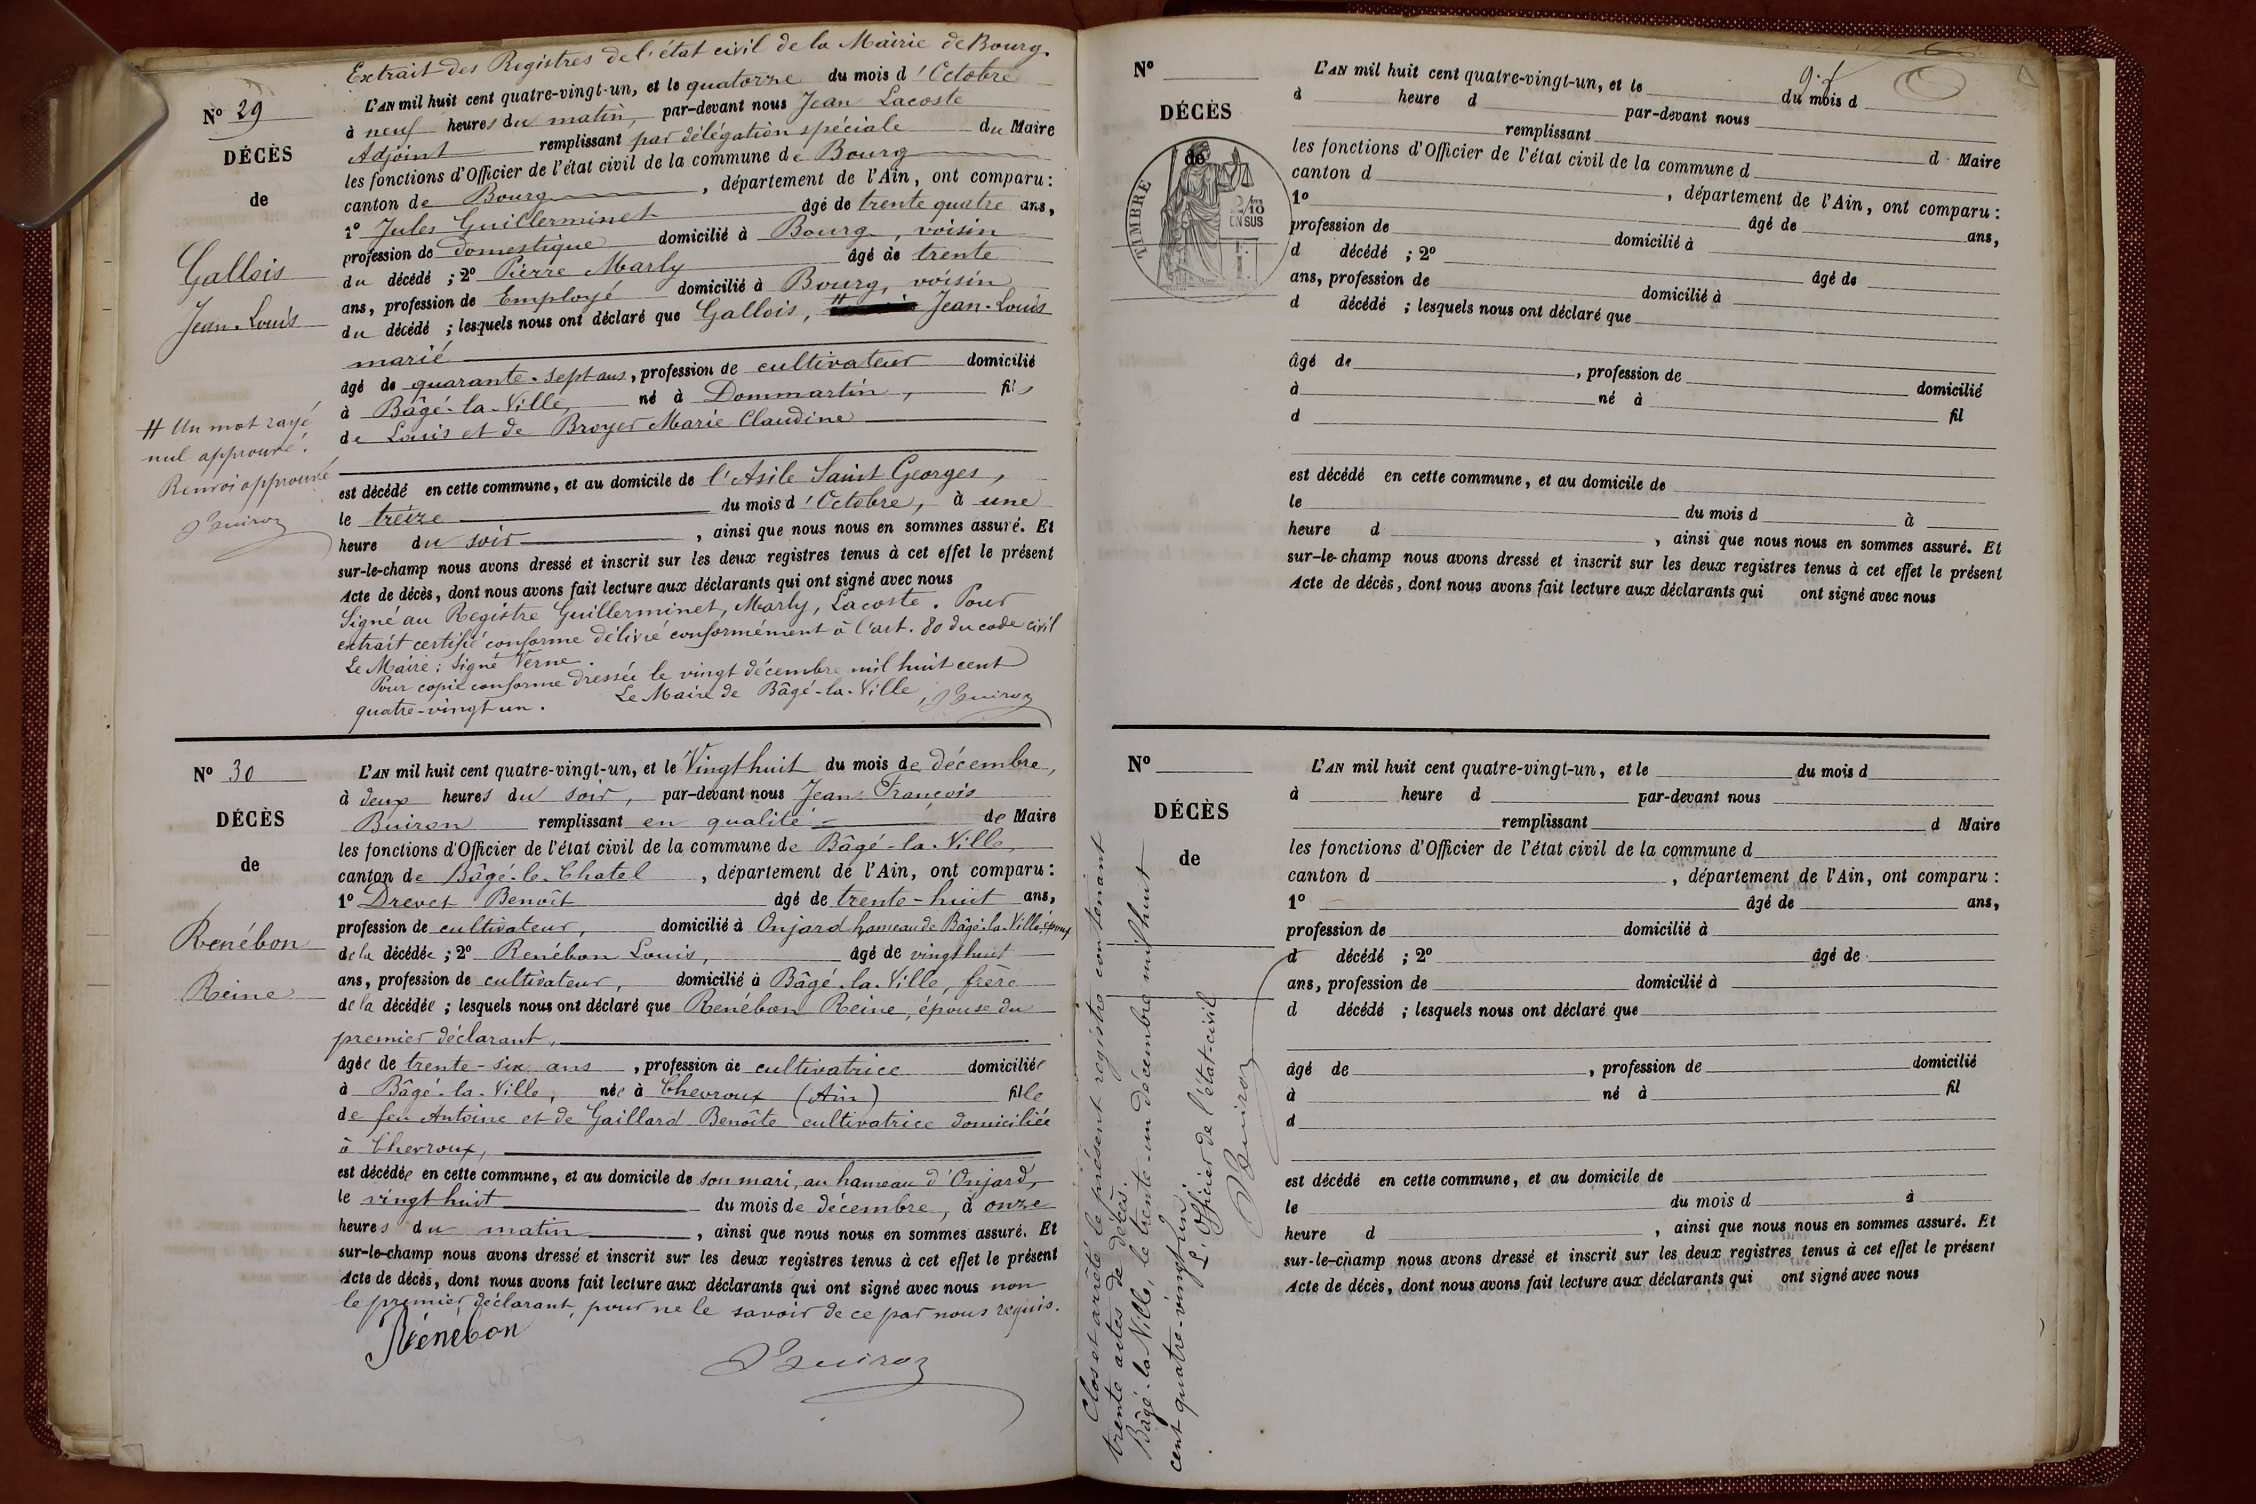 Extrait des Registres de l'état civil de la Mairie de Bourg.
N° 29
DÉCÈS
de
Gallois
Jean-Louis
# Un mot rayé
nul approuvé.
Renvoi approuvé
L'AN mil huit cent quatre-vingt-un, et le quatorze du mois d'Octobre
à neuf heures du matin, par-devant nous Jean Lacoste
Adjoint remplissant par délégation spéciale du Maire
les fonctions d'Officier de l'état civil de la commune de Bourg
canton de Bourg, département de l'Ain, ont comparu :
1° Jules Guillerminet âgé de trente quatre ans,
profession de domestique domicilié à Bourg, voisin
du décédé ; 2° Pierre Marly âgé de trente
ans, profession de Employé domicilié à Bourg, voisin
du décédé ; lesquels nous ont déclaré que Gallois, # Jean-Louis
marié
âgé de quarante-sept ans, profession de cultivateur domicilié
à Bâgé-la-Ville, né à Dommartin, fils
de Louis et de Broyer Marie Claudine
est décédé en cette commune, et au domicile de l'Asile Saint Georges,
le treize du mois d'Octobre, à une
heure du soir, ainsi que nous nous en sommes assuré. Et
sur-le-champ nous avons dressé et inscrit sur les deux registres tenus à cet effet le présent
Acte de décès, dont nous avons fait lecture aux déclarants qui ont signé avec nous
Signé au Registre Guillerminet, Marly, Lacoste. Pour
extrait certifié conforme délivré conformément à l'art. 80 du code civil
Le Maire : Signé Verne.
Pour copie conforme dressée le vingt décembre mil huit cent
quatre-vingt un. Le Maire de Bâgé-la-Ville, Buiron
N° 30
DÉCÈS
de
Renébon
Reine
L'AN mil huit cent quatre-vingt-un, et le Vingt huit du mois de décembre,
à deux heures du soir, par-devant nous Jean François
Buiron remplissant en qualité de Maire
les fonctions d'Officier de l'état civil de la commune de Bâgé-la-Ville,
canton de Bâgé-le-Chatel, département de l'Ain, ont comparu :
1° Drevet Benoît âgé de trente-huit ans,
profession de cultivateur, domicilié à Onjard hameau de Bâgé-la-Ville, époux
de la décédée ; 2° Renébon Louis, âgé de vingt huit
ans, profession de cultivateur, domicilié à Bâgé-la-Ville, frère
de la décédée ; lesquels nous ont déclaré que Renébon Reine, épouse du
premier déclarant,
âgée de trente-six ans, profession de cultivatrice domiciliée
à Bâgé-la-Ville, née à Chevroux (Ain) fille
de feu Antoine et de Gaillard Benoîte cultivatrice domiciliée
à Chevroux,
est décédée en cette commune, et au domicile de son mari, au hameau d'Onjard,
le vingt huit du mois de décembre, à onze
heures du matin, ainsi que nous nous en sommes assuré. Et
sur-le-champ nous avons dressé et inscrit sur les deux registres tenus à cet effet le présent
Acte de décès, dont nous avons fait lecture aux déclarants qui ont signé avec nous non
le premier déclarant, pour ne le savoir de ce par nous requis.
Rénebon
Buiron
N°
DÉCÈS
de
TIMBRE
2/10
EN SUS
L'AN mil huit cent quatre-vingt-un, et le du mois d
à heure d par-devant nous
remplissant d Maire
les fonctions d'Officier de l'état civil de la commune d
canton d , département de l'Ain, ont comparu :
1° âgé de ans,
profession de domicilié à
d décédé ; 2° âgé de
ans, profession de domicilié à
d décédé ; lesquels nous ont déclaré que
âgé de , profession de domicilié
à né à fil
d
est décédé en cette commune, et au domicile de
le du mois d à
heure d , ainsi que nous nous en sommes assuré. Et
sur-le-champ nous avons dressé et inscrit sur les deux registres tenus à cet effet le présent
Acte de décès, dont nous avons fait lecture aux déclarants qui ont signé avec nous
N°
DÉCÈS
de
L'AN mil huit cent quatre-vingt-un, et le du mois d
à heure d par-devant nous
remplissant d Maire
les fonctions d'Officier de l'état civil de la commune d
canton d , département de l'Ain, ont comparu :
1° âgé de ans,
profession de domicilié à
d décédé ; 2° âgé de
ans, profession de domicilié à
d décédé ; lesquels nous ont déclaré que
âgé de , profession de domicilié
à né à fil
d
est décédé en cette commune, et au domicile de
le du mois d à
heure d , ainsi que nous nous en sommes assuré. Et
sur-le-champ nous avons dressé et inscrit sur les deux registres tenus à cet effet le présent
Acte de décès, dont nous avons fait lecture aux déclarants qui ont signé avec nous
Clos et arrêté le présent registre contenant
trente actes de décès.
Bâgé-la-Ville, le trente un décembre mil huit
cent quatre-vingt un.
L'Officier de l'état-civil
Buiron